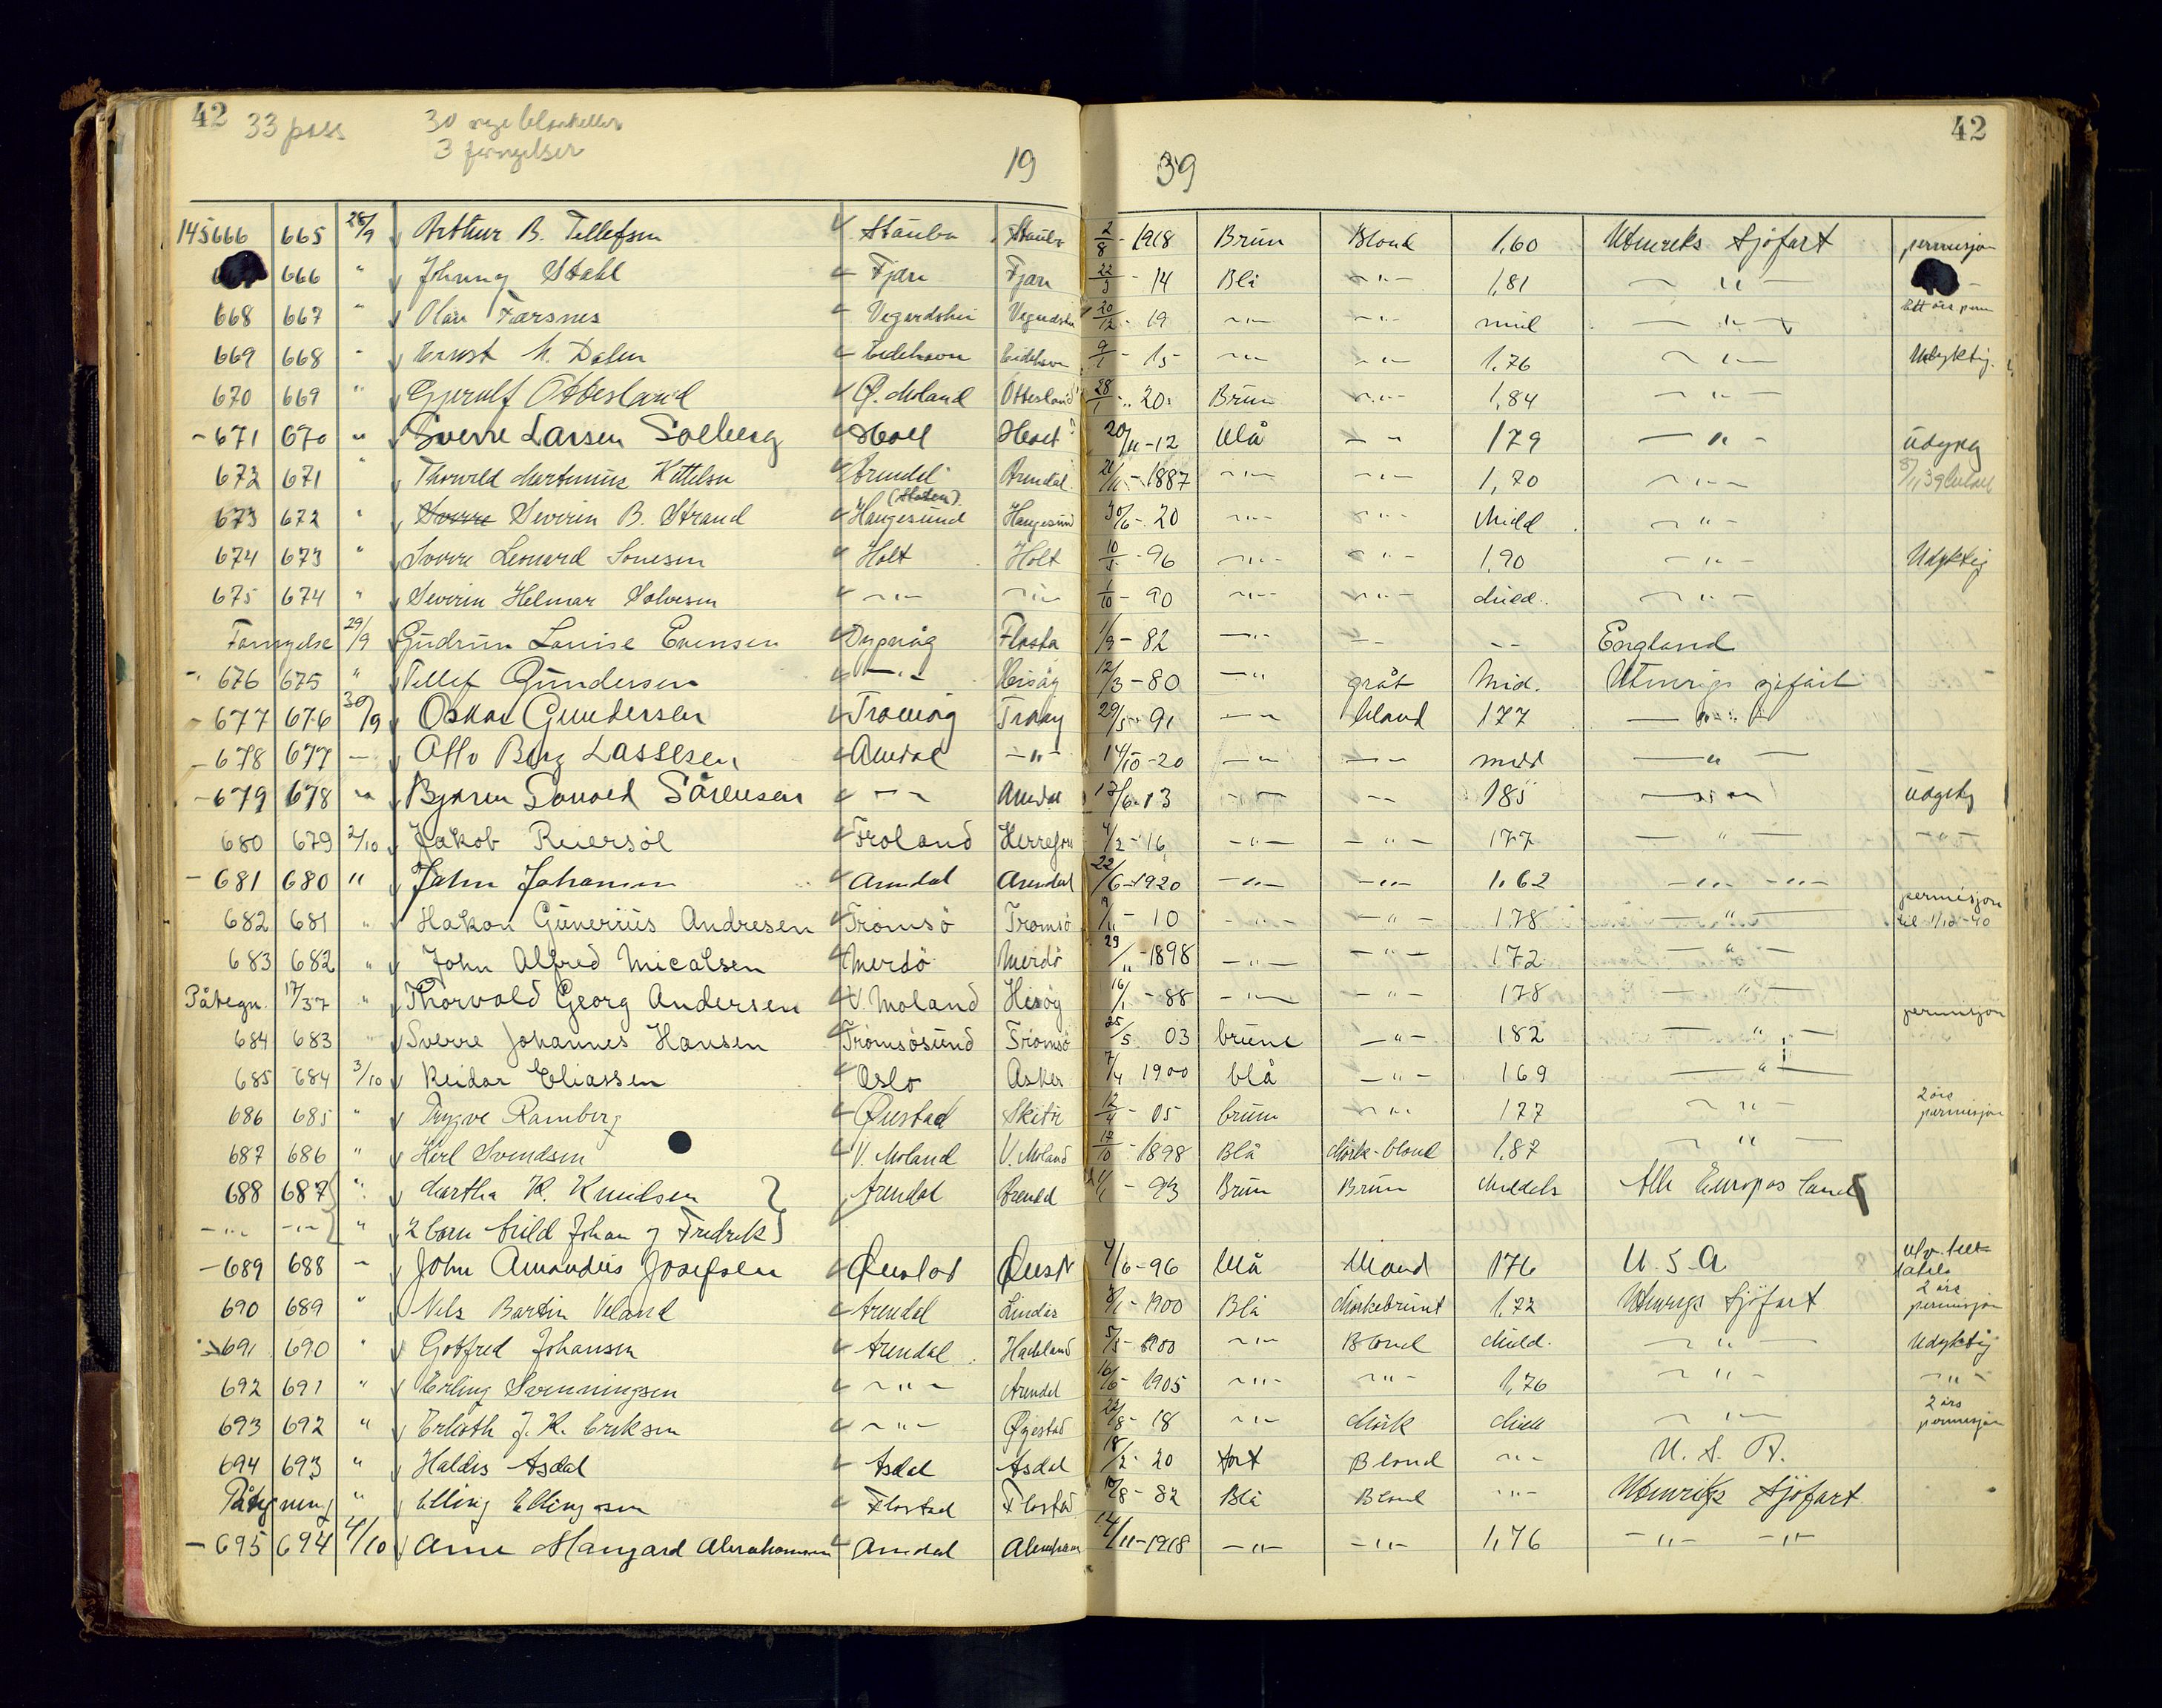 42 33 pass 30 nye blanketter 42
3 fornyelser
19 39
145666 665 28/9 Arthur B. Tellefsen Staubø Staubø 2/8 - 1918 Brun Blond 1,60 Utenriks Sjöfart permisjon
666 " Johnny Stahl Fjære Fjære 22/3 - 14 Blå -"- 1,81 -"-
668 667 " Olav Farsnes Vegårdshei Vegårdshei 20/12 - 19 -"- -"- mid -"- Ett års perm
669 668 " Ernst M. Dalen Eidehavn Eidehavn 9/1 - 15 -"- -"- 1,76 -"- Udyktig
670 669 " Gjerulf Ottesland Ø. Moland Ottesland 28/1 - 20 Brun -"- 1,84 -"-
- 671 670 " Sverre Larsen Solberg Holt Holt 20/11 - 12 Blå -"- 179 -"- Udyktig
672 671 " Thorvald Martinius Kittelsen Arendal Arendal 21/11 - 1887 -"- -"- 1,70 -"-
673 672 " Sverre Severin B. Strand Haugesund Haugesund 30/6 - 20 -"- -"- Midd -"-
674 673 " Sverre Leonard Tonesen Holt Holt 10/5 - 96 -"- -"- 1,90 -"- Udyktig
675 674 " Severin Helmar Salvesen -"- -"- 1/10 - 90 -"- -"- Midd. -"-
Fornyelse 29/9 Gudrun Louise Evensen Dypvåg Flosta 1/9 - 82 -"- -"- -- England
- 676 675 " Tellef Gundersen -"- Hisøy 12/3 - 80 -"- grått Mid. Utenriks sjøfart
- 677 676 30/9 Oskar Gundersen Tromøy Tromøy 29/5 - 91 -"- blond 177 -"-
- 678 677 - Otto Berg Lassesen Arendal -"- 14/10 - 20 -"- -"- midd -"-
- 679 678 " Bjarne Tonald Sörensen -"- Arendal 17/6 - 13 -"- -- 185 -"- Udyktig
680 679 2/10 Jakob Reiersöl Froland Herrefoss 4/2 - 16 -"- -"- 177 -"- -"-
- 681 680 " John Johansen Arendal Arendal 22/6 - 1920 -"- -"- 1.62 -"- -"-
682 681 " Håkon Gunerius Andresen Tromsö Tromsö 9/11 - 10 -"- -"- 178 -"- permisjon til 1/12 - 40
683 682 " John Alfred Micalsen Merdö Merdö 29/11 - 1898 -"- -"- 172 -"-
Påtegn. 17/37 " Thorvald Georg Andersen V. Moland Hisöy 16/1 - 88 -"- -"- 178 -"-
684 683 " Sverre Johannes Hansen Tromsösund Tromsö 25/5 03 brune -"- 182 -"- permisjon
685 684 3/10 Reidar Eliassen Oslo Asker 7/4 1900 blå -"- 169 -"-
686 685 " Trygve Ramberg Øiestad 12/4 - 05 brun -"- 177 -"- 2 års permisjon
687 686 " Karl Svendsen V. Moland V. Moland 17/10 - 1898 Blå Mörk-blond 1,87 -"-
688 687 " Martha K. Knudsen Arendal Arendal 11/1 - 93 Brun Brun Middels Alle Europas land
-"- -"- " 2 barn Arild Johan og Fredrik
- 689 688 - John Amandus Josefsen Øiestad Øiest 4/6 - 96 Blå Blond 176 U.S.A.
690 689 " Nels Bartin Veland Arendal Lindås 1900 Blå Mörkebrunt 1,72 Utenriks Sjöfart 2 års permisjon
691 690 " Gotfred Johansen Arendal 5/5 - 1900 -"- Blond Midd. -"- Udyktig
692 691 " Erling Svenningsen -"- Arendal 16/6 - 1905 -"- -"- 1,76 -"- -"-
693 692 " J. K. Eriksen -"- Øyestad 22/8 - 18 -"- Mörk Midd -"- 2 års permisjon
694 693 " Haldis Asdal Asdal Asdal 18/2 - 20 Blond -"- U. S. A.
Påtegning " Elling Ellingsen Flostad Flostad 10/8 - 82 Blå Blond -"- Utenriks Sjöfart
- 695 694 4/10 Arne Abrahamsen Arendal 1918 -"- -"- 1,76 -"- -"-